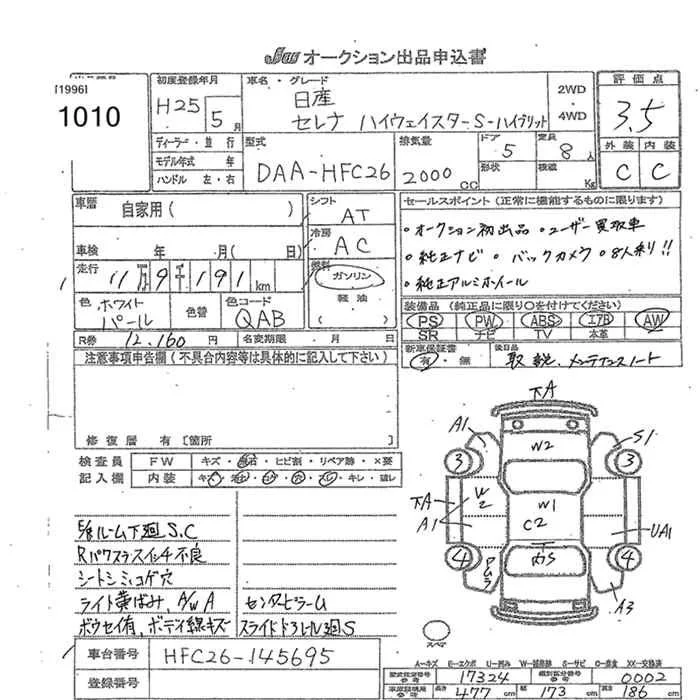 JU オークション出品申込書
[1996]
1010
初度登録年月
H25 5月
車名・グレード
日産
セレナ ハイウェイスターS-ハイブリット
2WD
・
4WD
評価点
3.5
外装 内装
C C
ディーラー・並行
モデル年式 年
ハンドル 左・右
型式
DAA-HFC26
排気量
2000 cc
ドア
5
形状
定員
8人
積載
Kg
車歴
自家用( )
シフト
AT
車検 年 月( 日)
冷房
AC
走行
11万9千191 km
燃料
ガソリン
軽油
色 ホワイトパール
色替
色コード
QAB
R券 12,160円
名変期限 月 日
セールスポイント(正常に機能するものに限ります)
・オークション初出品 ・ユーザー買取車
・純正ナビ ・バックカメラ ・8人乗り!!
・純正アルミホイール
装備品(純正品に限り○を付けてください)
PS PW ABS エアB AW
SR ナビ TV 本革
新車保証書
有・無
後日品
取説、メンテナンスノート
注意事項申告欄(不具合内容等は具体的に記入して下さい)
修復歴 有[箇所 ]
検査員
記入欄
FW キズ・飛石・ヒビ割・リペア跡・×要
内装 キズ・汚れ・コゲ・穴・スレ・キレ・破レ
ルーム下廻S.C
Rパワスラスイッチ不良
シートシミ、コゲ穴
ライト黄ばみ、A/W A
ボウセイ有、ボディ線キズ
センターピラーU
スライドドアレール廻S
下A
A1
S1
W2
3
3
下A
W2
A1
W1
C2
UA1
内S
4
4
A3
スペア
車台番号
HFC26-145695
登録番号
A=キズ E=エクボ U=凹み W=補修跡 S=サビ C=腐食 XX=交換済
型式指定番号
17324
類別区分番号
0002
長さ
477cm
幅
173cm
高さ
186cm